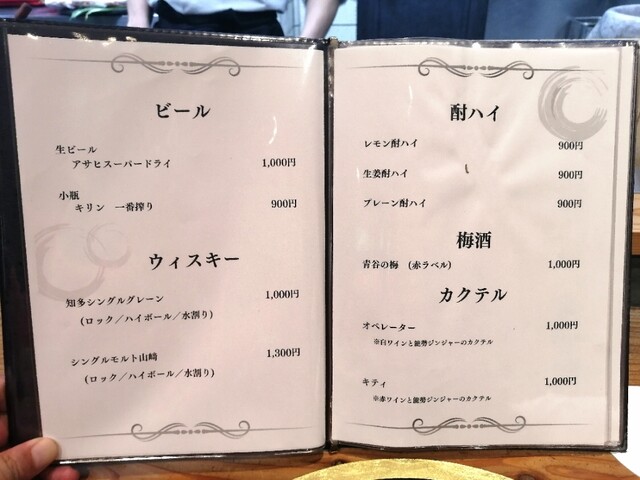 ビール
生ビール
アサヒスーパードライ 1,000円
小瓶
キリン 一番搾り 900円
ウィスキー
知多シングルグレーン 1,000円
(ロック／ハイボール／水割り)
シングルモルト山崎 1,300円
(ロック／ハイボール／水割り)
酎ハイ
レモン酎ハイ 900円
生姜酎ハイ 900円
プレーン酎ハイ 900円
梅酒
青谷の梅 (赤ラベル) 1,000円
カクテル
オペレーター 1,000円
※白ワインと能勢ジンジャーのカクテル
キティ 1,000円
※赤ワインと能勢ジンジャーのカクテル